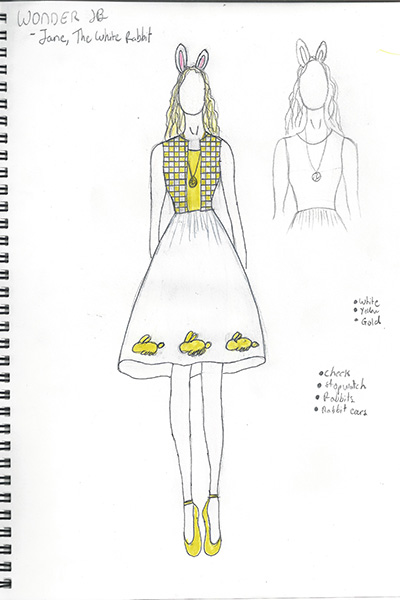 WONDER JB
- Jane, The White Rabbit
• White
• Yellow
• Gold
• Checks
• Stopwatch
• Rabbits
• Rabbit ears